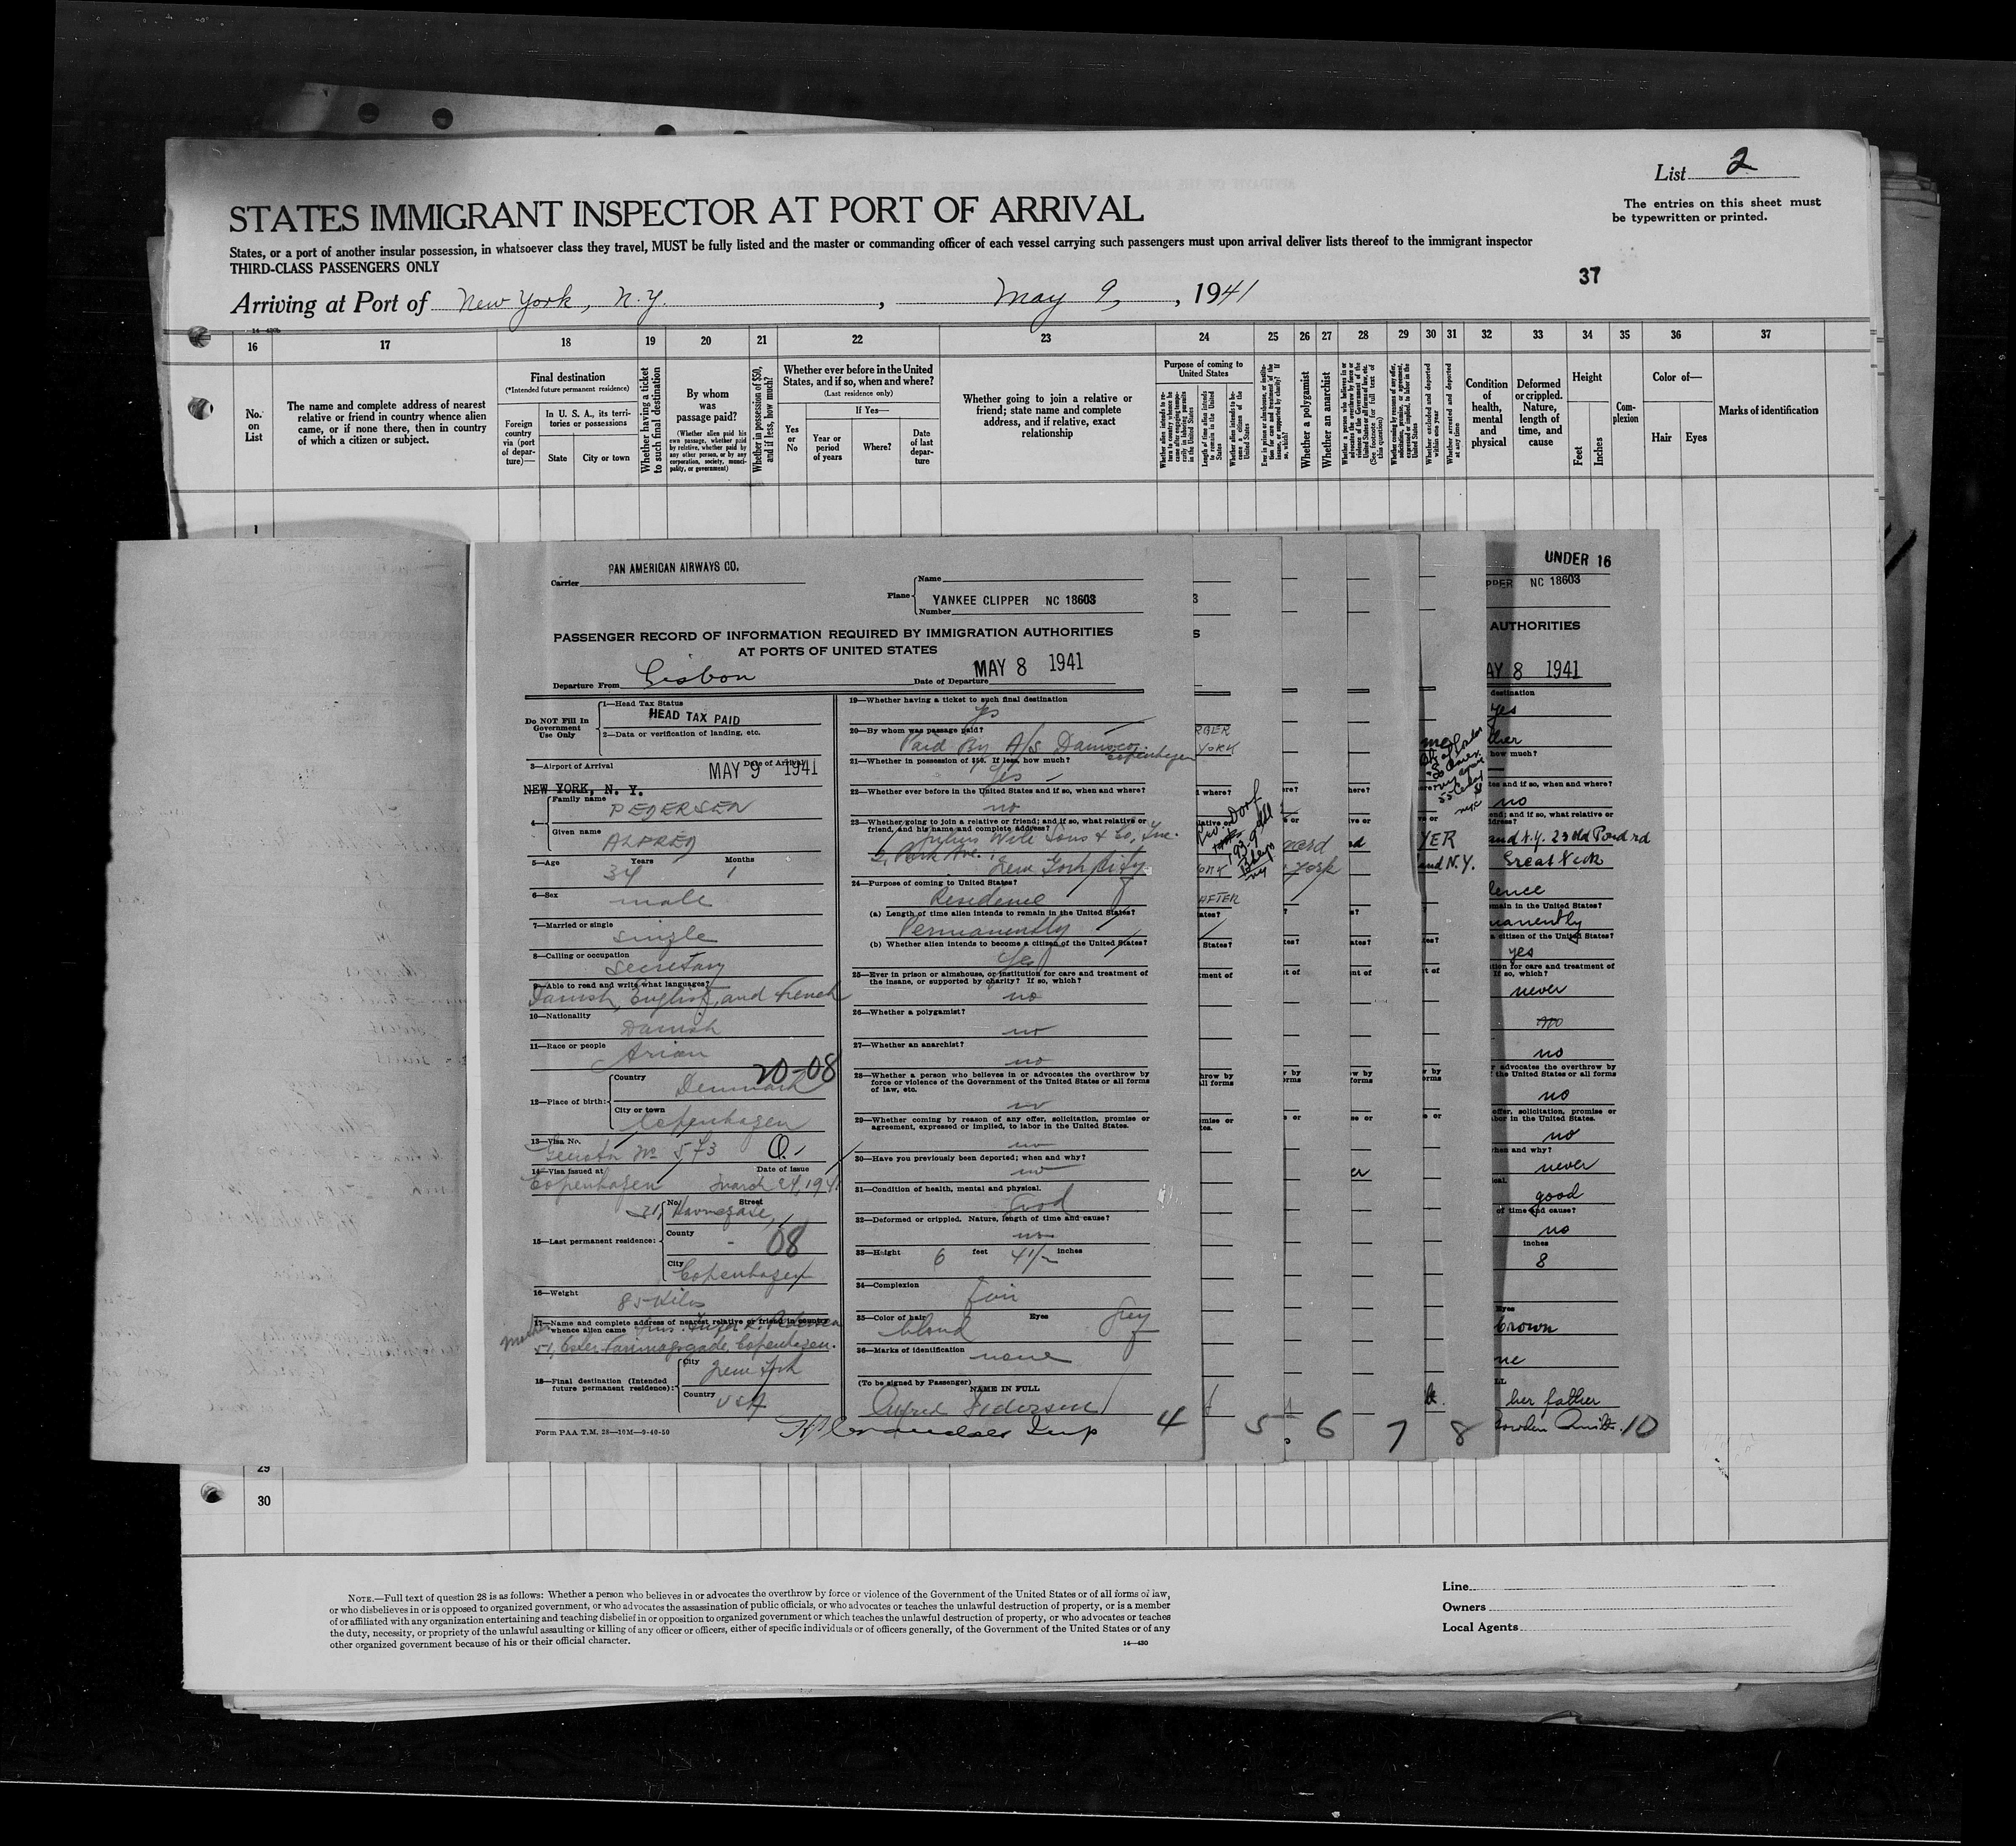 List 2
The entries on this sheet must
be typewritten or printed.
STATES IMMIGRANT INSPECTOR AT PORT OF ARRIVAL
States, or a port of another insular possession, in whatsoever class they travel, MUST be fully listed and the master or commanding officer of each vessel carrying such passengers must upon arrival deliver lists thereof to the immigrant inspector
THIRD-CLASS PASSENGERS ONLY
37
Arriving at Port of New York, N.Y., May 9, 1941
16 17 18 19 20 21 22 23 24 25 26 27 28 29 30 31 32 33 34 35 36 37
No. on List
The name and complete address of nearest
relative or friend in country whence alien
came, or if none there, then in country
of which a citizen or subject.
Final destination
(*Intended future permanent residence)
Foreign country via (port of departure)—
In U. S. A., its territories or possessions
State
City or town
Whether having a ticket to such final destination
By whom was passage paid?
(Whether alien paid his own passage, whether paid by relative, whether paid by any other person, or by any corporation, society, municipality, or government)
Whether in possession of $50, and if less, how much?
Whether ever before in the United
States, and if so, when and where?
(Last residence only)
Yes or No
If Yes—
Year or period of years
Where?
Date of last departure
Whether going to join a relative or
friend; state name and complete
address, and if relative, exact
relationship
Purpose of coming to
United States
Length of time alien intends to remain in the United States
Whether alien intends to become a citizen of the United States
Whether a polygamist
Whether an anarchist
Whether arrested and deported at any time
Condition of health, mental and physical
Deformed or crippled. Nature, length of time, and cause
Height
Feet
Inches
Complexion
Color of—
Hair
Eyes
Marks of identification
1
PAN AMERICAN AIRWAYS CO.
Carrier
Plane
Name
YANKEE CLIPPER NC 18603
Number
PASSENGER RECORD OF INFORMATION REQUIRED BY IMMIGRATION AUTHORITIES
AT PORTS OF UNITED STATES
Departure From Lisbon
Date of Departure MAY 8 1941
Do NOT Fill In
Government
Use Only
1—Head Tax Status
HEAD TAX PAID
2—Data or verification of landing, etc.
3—Airport of Arrival
Date of Arrival
MAY 9 1941
NEW YORK, N. Y.
4—
Family name
PEDERSEN
Given name
ALFRED
5—Age
Years
Months
34 1
6—Sex
male
7—Married or single
single
8—Calling or occupation
Secretary
9—Able to read and write what languages?
Danish, English, and French
10—Nationality
Danish
11—Race or people
Arian
20-08
12—Place of birth:
Country
Denmark
City or town
Copenhagen
13—Visa No.
573 Q.
14—Visa issued at
Date of issue
Copenhagen March 24, 194
15—Last permanent residence:
No.
Street
21,
County
08
City
Copenhagen
16—Weight
85 Kilos
17—Name and complete address of nearest relative or friend in country
whence alien came
Mother
Copenhagen.
18—Final destination (Intended
future permanent residence):
City
New York
Country
USA
Form PAA T.M. 28—10M—9-40-50
19—Whether having a ticket to such final destination
Yes
20—By whom was passage paid?
Paid By A/S
Copenhagen
21—Whether in possession of $50. If less, how much?
Yes
22—Whether ever before in the United States and if so, when and where?
no
23—Whether going to join a relative or friend; and if so, what relative or
friend, and his name and complete address?
Julius Wile Sons & Co, Inc.
2, Park Ave.
New York City
24—Purpose of coming to United States?
Residence
(a) Length of time alien intends to remain in the United States?
Permanently
(b) Whether alien intends to become a citizen of the United States?
Yes
25—Ever in prison or almshouse, or institution for care and treatment of
the insane, or supported by charity? If so, which?
no
26—Whether a polygamist?
no
27—Whether an anarchist?
no
28—Whether a person who believes in or advocates the overthrow by
force or violence of the Government of the United States or all forms
of law, etc.
no
29—Whether coming by reason of any offer, solicitation, promise or
agreement, expressed or implied, to labor in the United States.
no
30—Have you previously been deported; when and why?
no
31—Condition of health, mental and physical.
Good
32—Deformed or crippled. Nature, length of time and cause?
no
33—Height 6 feet 4 1/2 inches
34—Complexion
fair
35—Color of hair
Eyes
blond Grey
36—Marks of identification
none
(To be signed by Passenger)
NAME IN FULL
Alfred Pedersen
4 5 6 7 8 10
UNDER 16
PPER NC 18603
AUTHORITIES
AY 8 1941
destination
yes
how much?
tes and if so, when and where?
no
end; and if so, what relative or
dress?
and N.Y. 23 Old Pond rd
Great Neck
YER
and N.Y.
main in the United States?
manently
citizen of the United States?
yes
tion for care and treatment of
If so, which?
never
no
no
advocates the overthrow by
the United States or all forms
no
offer, solicitation, promise or
abor in the United States.
no
when and why?
never
good
of time and cause?
no
inches
8
Eyes
brown
ne
her father
29
30
NOTE.—Full text of question 28 is as follows: Whether a person who believes in or advocates the overthrow by force or violence of the Government of the United States or of all forms of law,
or who disbelieves in or is opposed to organized government, or who advocates the assassination of public officials, or who advocates or teaches the unlawful destruction of property, or is a member
of or affiliated with any organization entertaining and teaching disbelief in or opposition to organized government or which teaches the unlawful destruction of property, or who advocates or teaches
the duty, necessity, or propriety of the unlawful assaulting or killing of any officer or officers, either of specific individuals or of officers generally, of the Government of the United States or of any
other organized government because of his or their official character.
14—430
Line
Owners
Local Agents